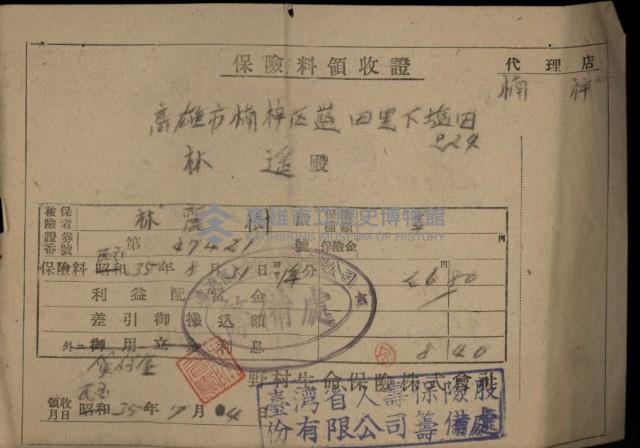 保險料領收證
代理店
楠梓
高雄市楠梓区藍田里下塩田
224
林 遥 殿
被保險者 林 霞 樹 殿 保險種類
保險證券番號 第 27421 號 保險金 円
保險料 昭和 民国 35年8月31日 1年分 26 80
利益配當金
差引御拂込額
外ニ御用立金利息 8 40
貸付金
野村生命保險株式會社
領收月日 昭和 民国 35年7月4日
高雄市立歷史博物館
KAOHSIUNG MUSEUM OF HISTORY
籌備處
臺湾省人壽保險股
份有限公司籌備處